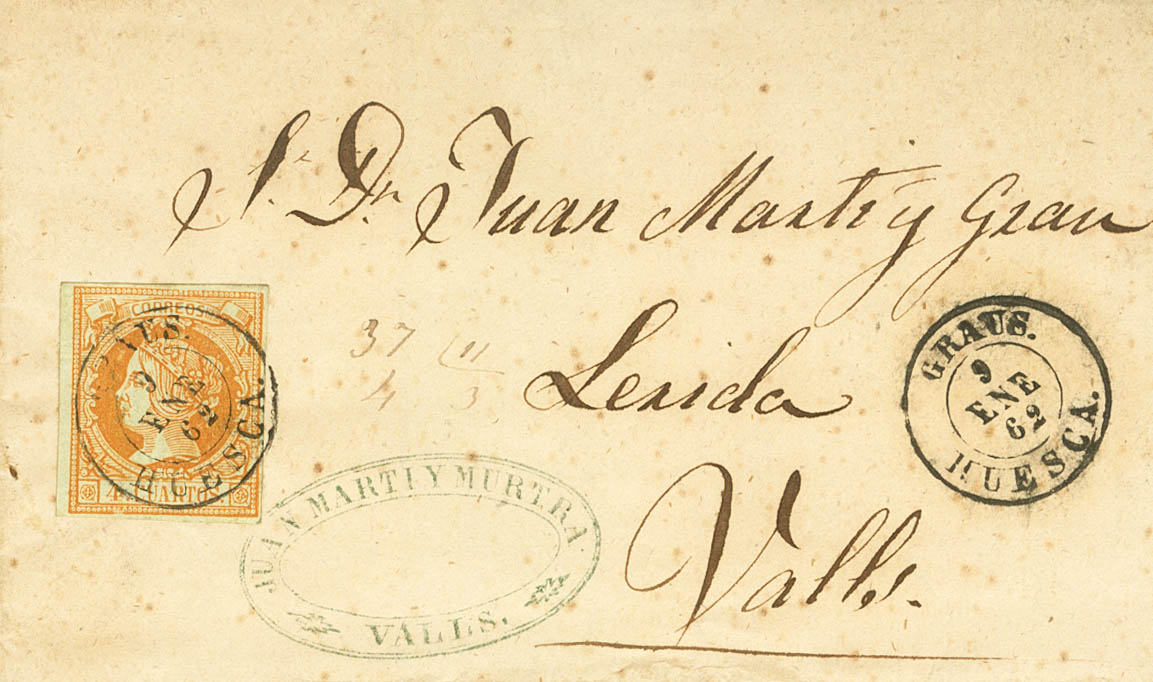 Sr Dn Juan Martí y Grau
Lerida
Valls.
CORREOS
4 CUARTOS
GRAUS.
9
ENE
62
HUESCA.
37 11
4 3
GRAUS.
9
ENE
62
HUESCA.
JUAN MARTI Y MURTRA
VALLS.